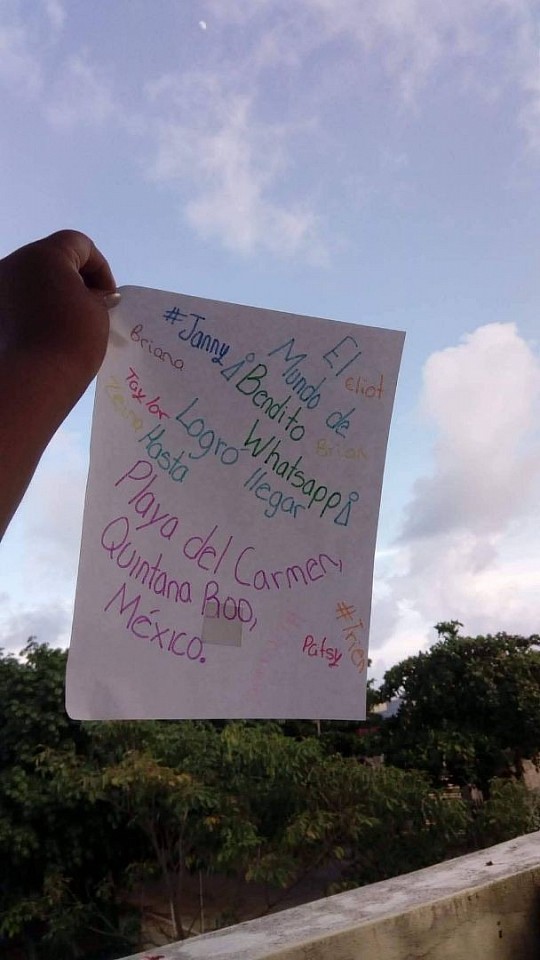 #Janny
El
Mundo de
Bendito
Whatsapp
Logró llegar
Hasta
Playa del Carmen,
Quintana Roo,
México.
Briana
Eliot
Taylor
Brian
Patsy